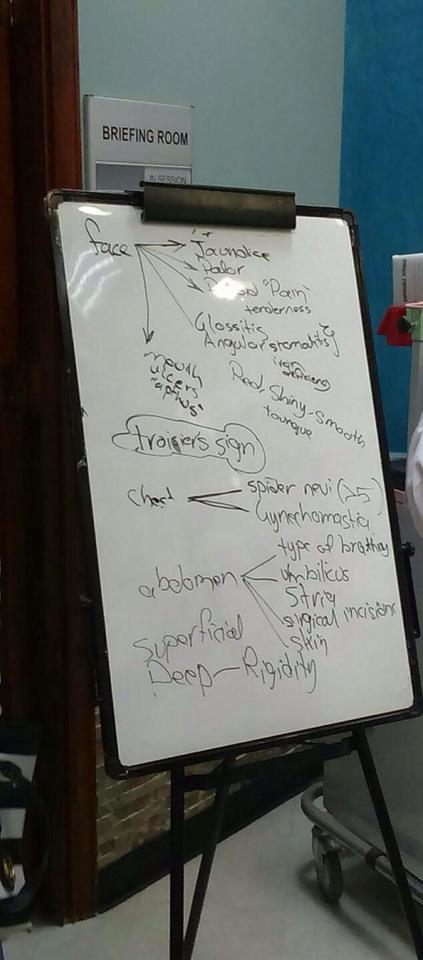 BRIEFING ROOM
IN SESSION
face
Jaundice
Palor
"Pain"
tenderness
Glossitis
Angular stomatitis
iron
deficiency
mouth
ulcers
Red, Shiny-Smooth
tounque
traisier's sign
chest
spider nevi (>5)
Gynechomastia
abdomen
type of brathing
umbilicus
Stria
surgical incisions
Skin
Superficial
Deep - Rigidity